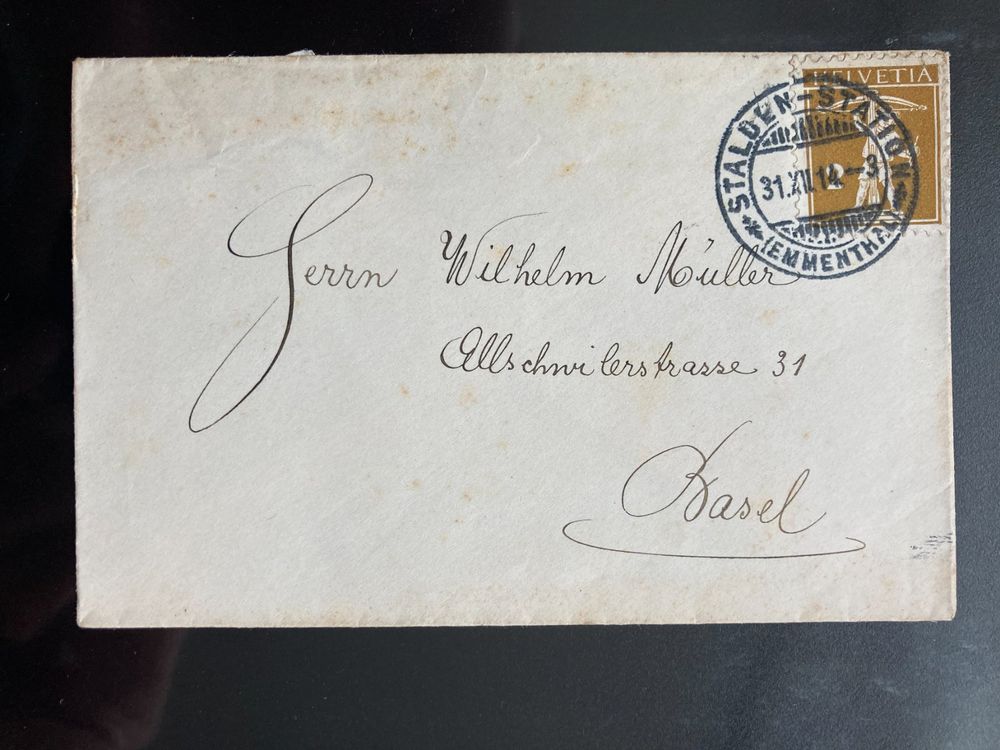 HELVETIA
2
STALDEN-STATION
31.XII.14.-3
(EMMENTHAL)
Herrn Wilhelm Müller
Allschwilerstrasse 31
Basel